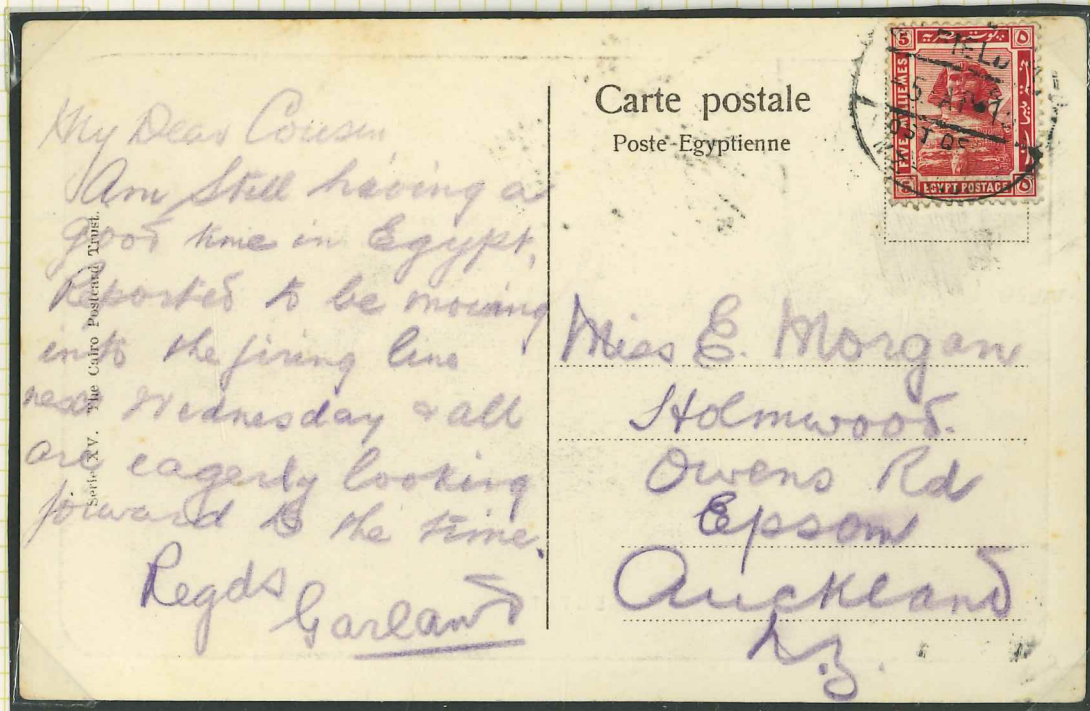 My Dear Cousin
Am Still having a
good time in Egypt,
Reported to be moving
into the firing line
next Wednesday & all
are eagerly looking
forward to the time.
Regds
Garland
Series XV. The Cairo Postcard Trust.
Carte postale
Poste Egyptienne
FIELD
5
POST OF
5 ٥
FIVE MILLIEMES
5 EGYPT POSTAGE ٥
Miss E. Morgan
Holmwood.
Owens Rd
Epsom
Auckland
N.Z.